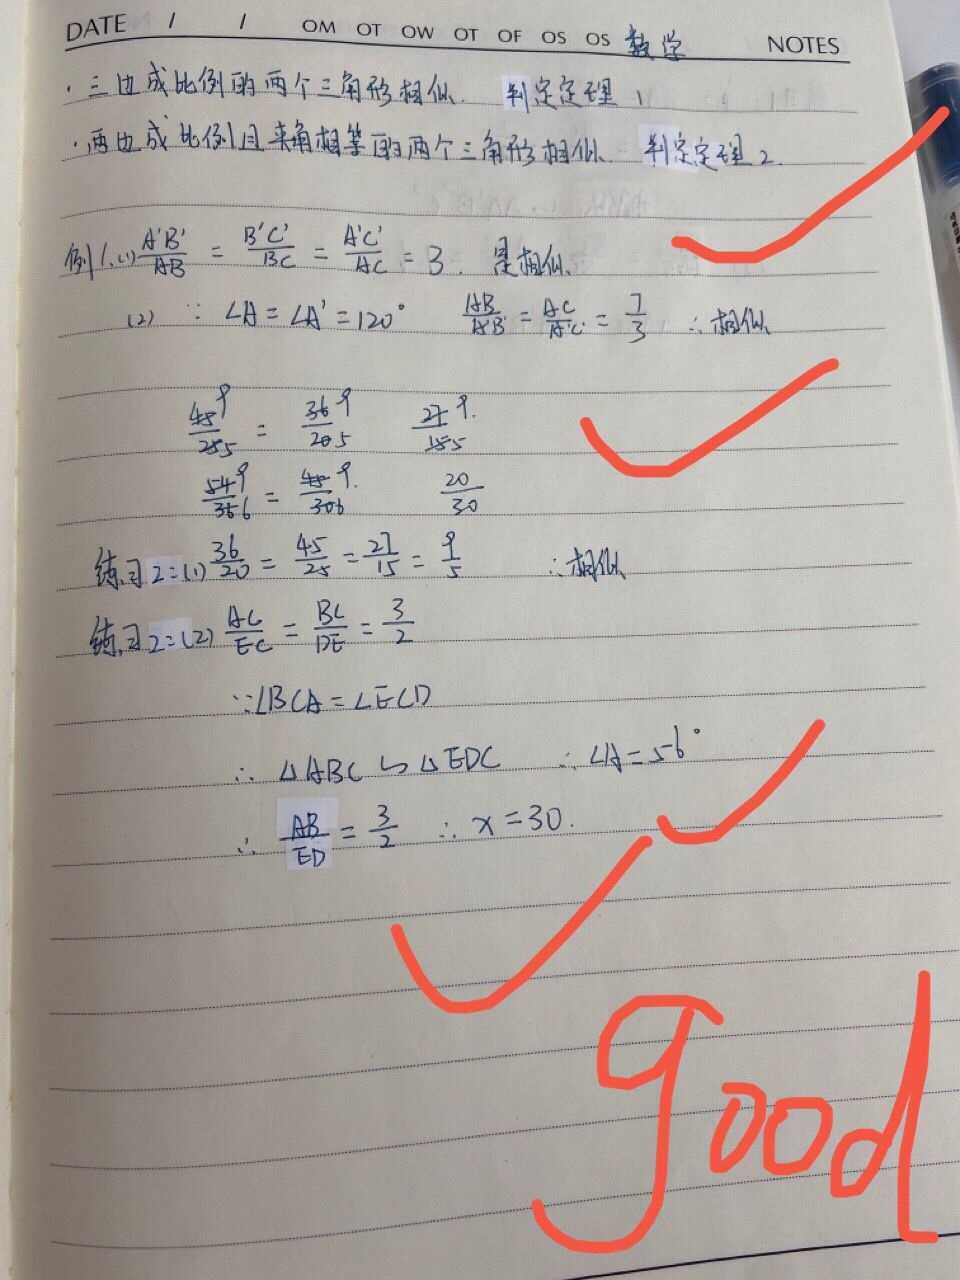 DATE / / OM OT OW OT OF OS OS 数学 NOTES
·三边成比例的两个三角形相似. 判定定理1
·两边成比例且夹角相等的两个三角形相似. 判定定理2.
例1.(1) A'B'/AB = B'C'/BC = A'C'/AC = 3. 是相似.
(2) ∵ ∠A = ∠A' = 120° AB/A'B' = AC/A'C' = 7/3 ∴相似
45 9/25 5 = 36 9/20 5 27 9./15 5
54 9/36 6 = 45 9./30 6 20/30
练习2:(1) 36/20 = 45/25 = 27/15 = 9/5 ∴相似
练习2:(2) AC/EC = BC/DE = 3/2
∵∠BCA = ∠ECD
∴ △ABC ∽ △EDC ∴ ∠A = 56°
∴ AB/ED = 3/2 ∴ x = 30.
good